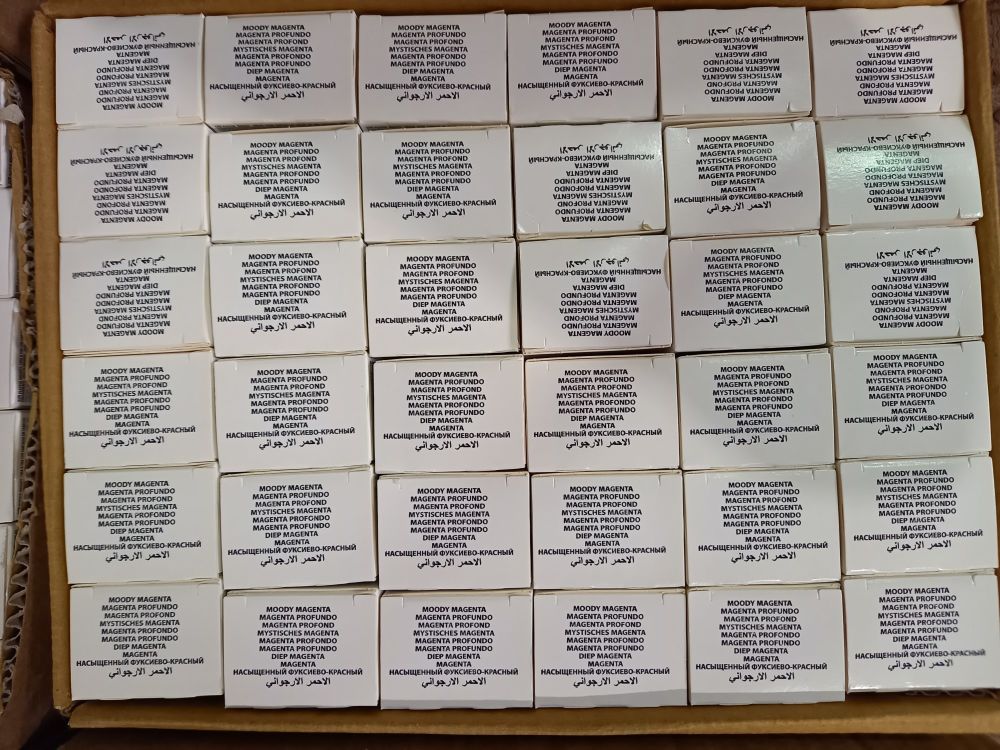 MOODY MAGENTA
MAGENTA PROFUNDO
MAGENTA PROFOND
MYSTISCHES MAGENTA
MAGENTA PROFONDO
MAGENTA PROFUNDO
DIEP MAGENTA
MAGENTA
НАСЫЩЕННЫЙ ФУКСИЕВО-КРАСНЫЙ
الاحمر الارجواني